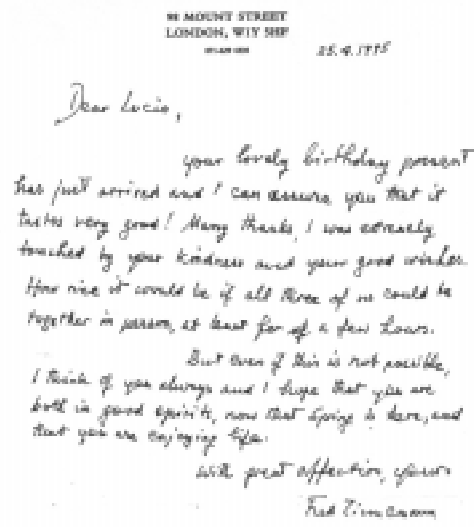 98 MOUNT STREET
LONDON, W1Y 5HF
25.4.1995
Dear Lucie,
your lovely birthday present
has just arrived and I can assure you that it
tastes very good! Many thanks, I was extremely
touched by your kindness and your good wishes.
How nice it would be if all three of us could be
together in person, at least for a few hours.
But even if this is not possible,
I think of you always and I hope that you are
both in good spirits, now that Spring is here, and
that you are enjoying life.
with great affection, yours
Fred